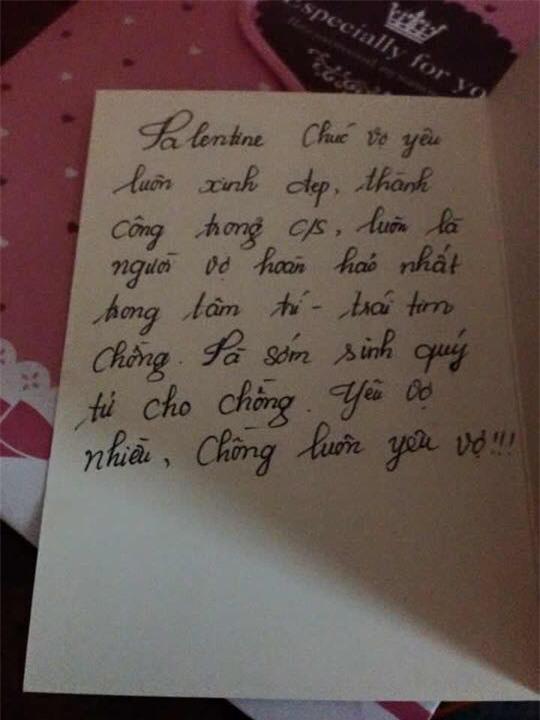 Especially for yo
Valentine Chúc vợ yêu
luôn xinh đẹp, thành
công trong c/s, luôn là
người vợ hoàn hảo nhất
trong tâm trí - trái tim
chồng. Và sớm sinh quý
tử cho chồng. Yêu vợ
nhiều, Chồng luôn yêu vợ!!!